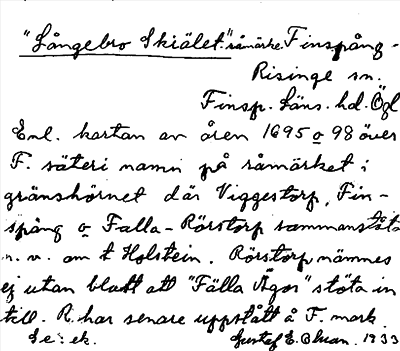 "Långebro Skiälet." råmärke. Finspång -
Risinge sn.
Finsp. läns. hd. Ögl
Enl. kartan av åren 1695 o 98 över
F. säteri namn på råmärket i
gränshörnet där Viggestorp, Fin-
spång o Falla-Rörstorp sammanstöta
n. v. om t Holstein. Rörstorp nämnes
ej utan blott att "Fälla Ägor" stöta in
till. R. har senare uppstått å F. mark.
Se: ek. Gustaf E. 1933